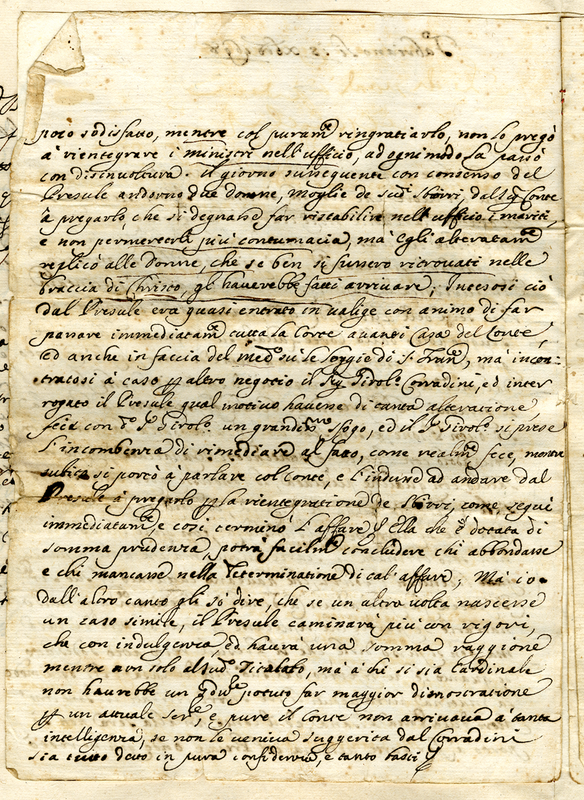 poco sodisfatto, mentre col puram.te ringratiarlo, non lo pregò
à rientegrare i ministri nell'ufficio, ad ogni modo la passò
con disinvoltura. Il giorno susseguente con consenso del
Presule andorno due donne, moglie de sud.i sbirri, dal Sig.r Conte
à pregarlo, che si degnasse far ristabilire nell'ufficio i mariti,
e non permetterli più contumacia, mà egli alteratam.te
replicò alle Donne, che se ben si fussero ritrovati nelle
braccia di Christo, gl'haverebbe fatti arrivare; Intesosi ciò
dal Presule era quasi entrato in valige con animo di far
passare immediatam.te tutta la Corte avanti Casa del Conte,
ed anche in faccia del med.o sù le di S. Fran.co, mà incon-
tratosi à caso p altro negotio il Sig.r Girol.o Corradini, ed inter
rogato il Presule qual motivo havesse di tanta alteratione,
fece con d.o S.r Girol.o un grandissimo sfogo, ed il S.r Girol.o si prese
l'incombenza di rimediare al fatto, come realm.te fece, mentre
subito si portò à parlare col Conte, e l'indusse ad andare dal
Presule à pregarlo p la rientegratione de sbirri, come seguì
immediatam.te e così terminò l'affare. Ella che è dotata di
somma prudenza, potrà facilm.te concludere chi abbondasse
e chi mancasse nella determinatione di tal'affare; Mà io
dall'altro canto gli sò dire, che se un altra volta nascesse
un caso simile, il Presule caminarà più con rigori,
che con indulgenza, ed haurà una somma raggione
mentre non solo al sud.o Titolato, mà à chi si sia Cardinale
non haurebbe un potuto far maggior dimostratione
p un attuale ser.re, e pure il Conte non arrivava à tanta
intelligenza, se non le veniva suggerita dal Corradini
sia tutto detto in pura confidenza, e tanto basti